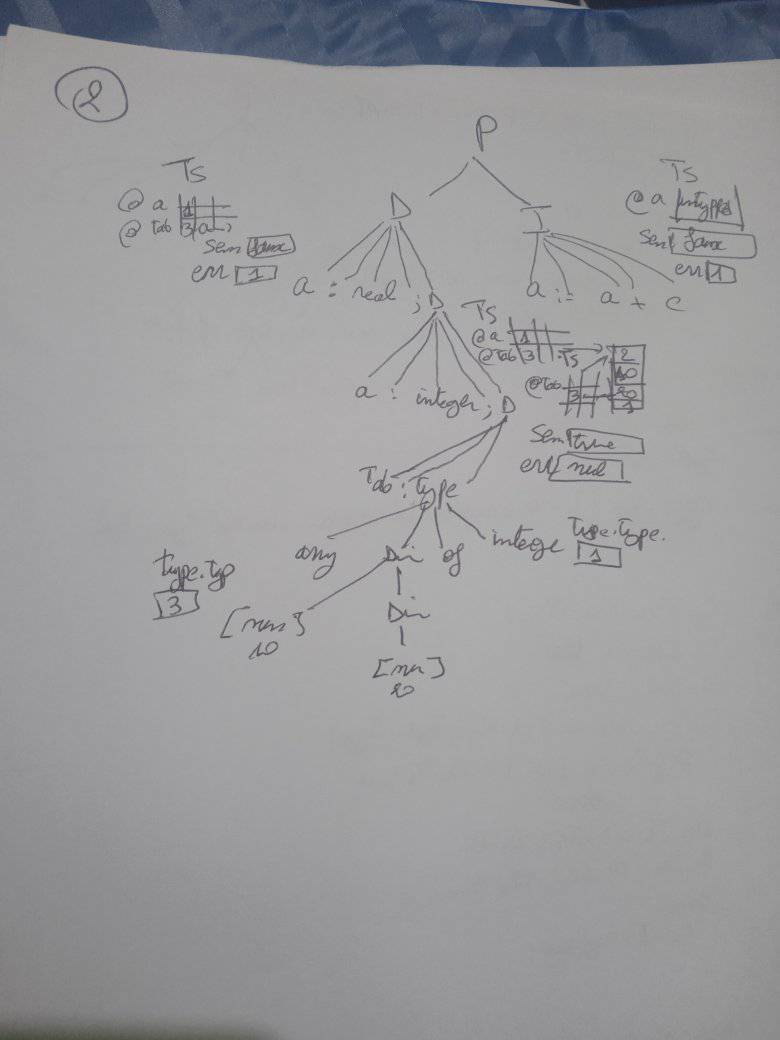 2
P
TS
@ a 1
@ Tab 3
Sem faux
err 1
D
I
TS
@ a
Sem faux
err 1
a : real ; D
a := a + c
TS
@a 1
@Tab 3
TS
@Tab 3
2
10
20
1
a : integer ; D
Sem true
err
Tab : type
array Dim of intege
type.type.
1
type.typ
3
[num]
10
Dim
[num]
20